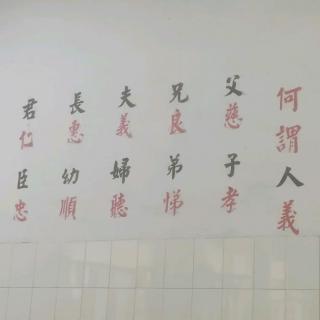 何謂人義
父慈子孝
兄良弟悌
夫義婦聽
長惠幼順
君仁臣忠